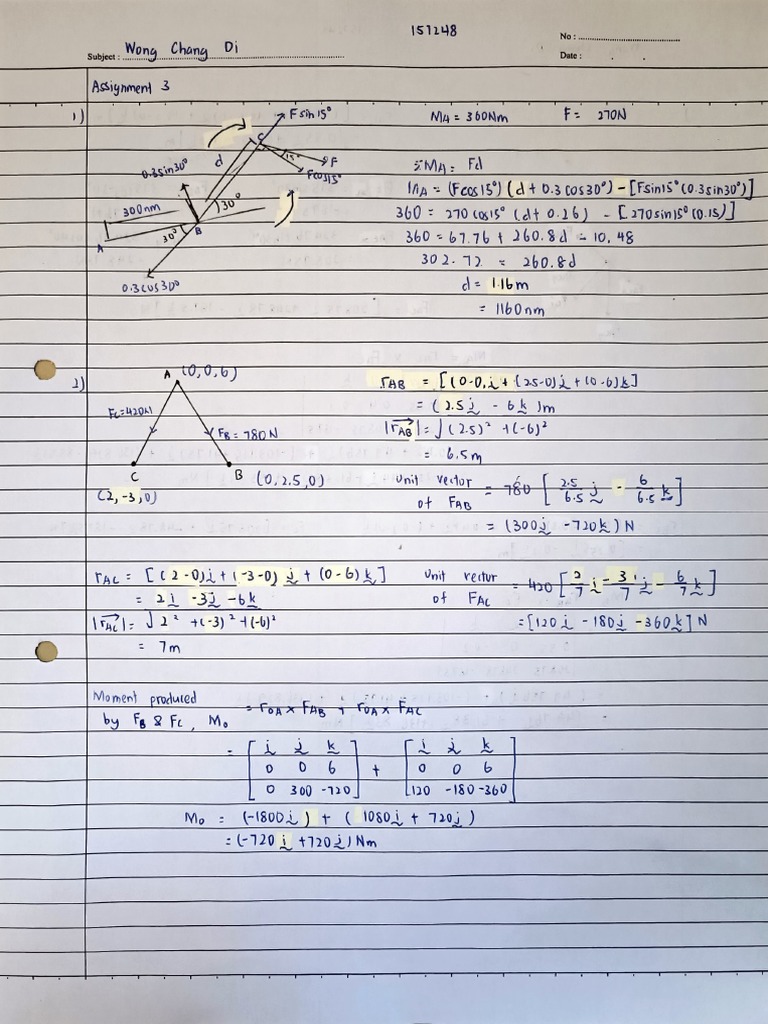 151248
No :
Subject : Wong Chang Di
Date :
Assignment 3
1)
F sin 15°
C
15°
F
Fcos15°
d
0.3sin30°
30°
300mm
A
B
30°
0.3cos30°
MA = 360Nm F = 270N
ΣMA = Fd
MA = (Fcos15°) (d + 0.3 cos30°) - [Fsin15° (0.3sin30°)]
360 = 270 cos15° (d + 0.26) - [270sin15° (0.15)]
360 = 67.76 + 260.8d - 10.48
302.72 = 260.8d
d = 1.16m
= 1160mm
2)
A (0,0,6)
Fc=420N
FB = 780N
C
B (0, 2.5, 0)
(2, -3, 0)
rAB = [(0-0)i + (2.5-0)j + (0-6)k]
= (2.5j - 6k)m
|rAB| = √(2.5)² + (-6)²
= 6.5m
Unit vector of FAB = 780 [2.5/6.5 j - 6/6.5 k]
= (300j - 720k) N
rAC = [(2-0)i + (-3-0)j + (0-6)k]
= 2i - 3j - 6k
|rAC| = √2² + (-3)² + (-6)²
= 7m
Unit vector of FAC = 420 [2/7 i - 3/7 j - 6/7 k]
= [120i - 180j - 360k] N
Moment produced
by FB & FC, Mo = rOA × FAB + rOA × FAC
= [i j k] + [i j k]
0 0 6 0 0 6
0 300 -720 120 -180 -360
Mo = (-1800i) + (1080i + 720j)
= (-720i + 720j) Nm